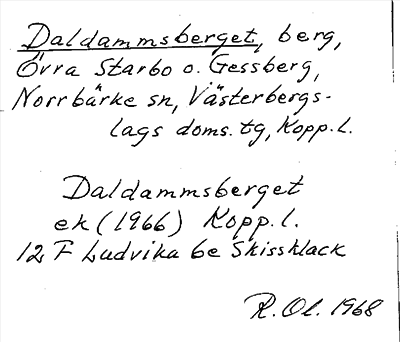 Daldammsberget, berg,
Övra Starbo o. Gessberg,
Norrbärke sn, Västerbergs-
lags doms. tg, Kopp. l.
Daldammsberget
ek (1966) Kopp. l.
12 F Ludvika 6e Skissklack
R. Ol. 1968